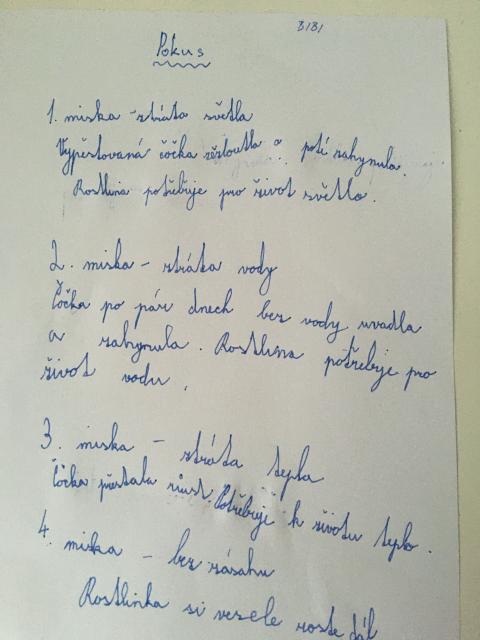 BIBI
Pokus
1. miska - ztráta světla
Vypěstovaná čočka zežloutla a potí zahynula.
Rostlina potřebuje pro život světlo.
2. miska - ztráta vody
Čočka po pár dnech bez vody uvadla
a zahynula. Rostlina potřebuje pro
život vodu.
3. miska - ztráta tepla
Čočka přestala růst. Potřebuje k životu teplo.
4. miska - bez zásahu
Rostlinka si vesele roste dál